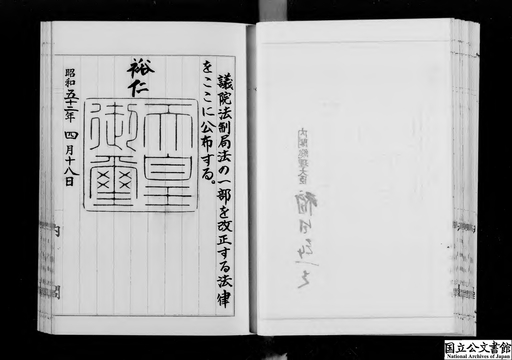 議院法制局法の一部を改正する法律
をここに公布する。
裕仁
天皇
御璽
昭和五十三年四月十八日
内閣
内閣総理大臣
国立公文書館
National Archives of Japan